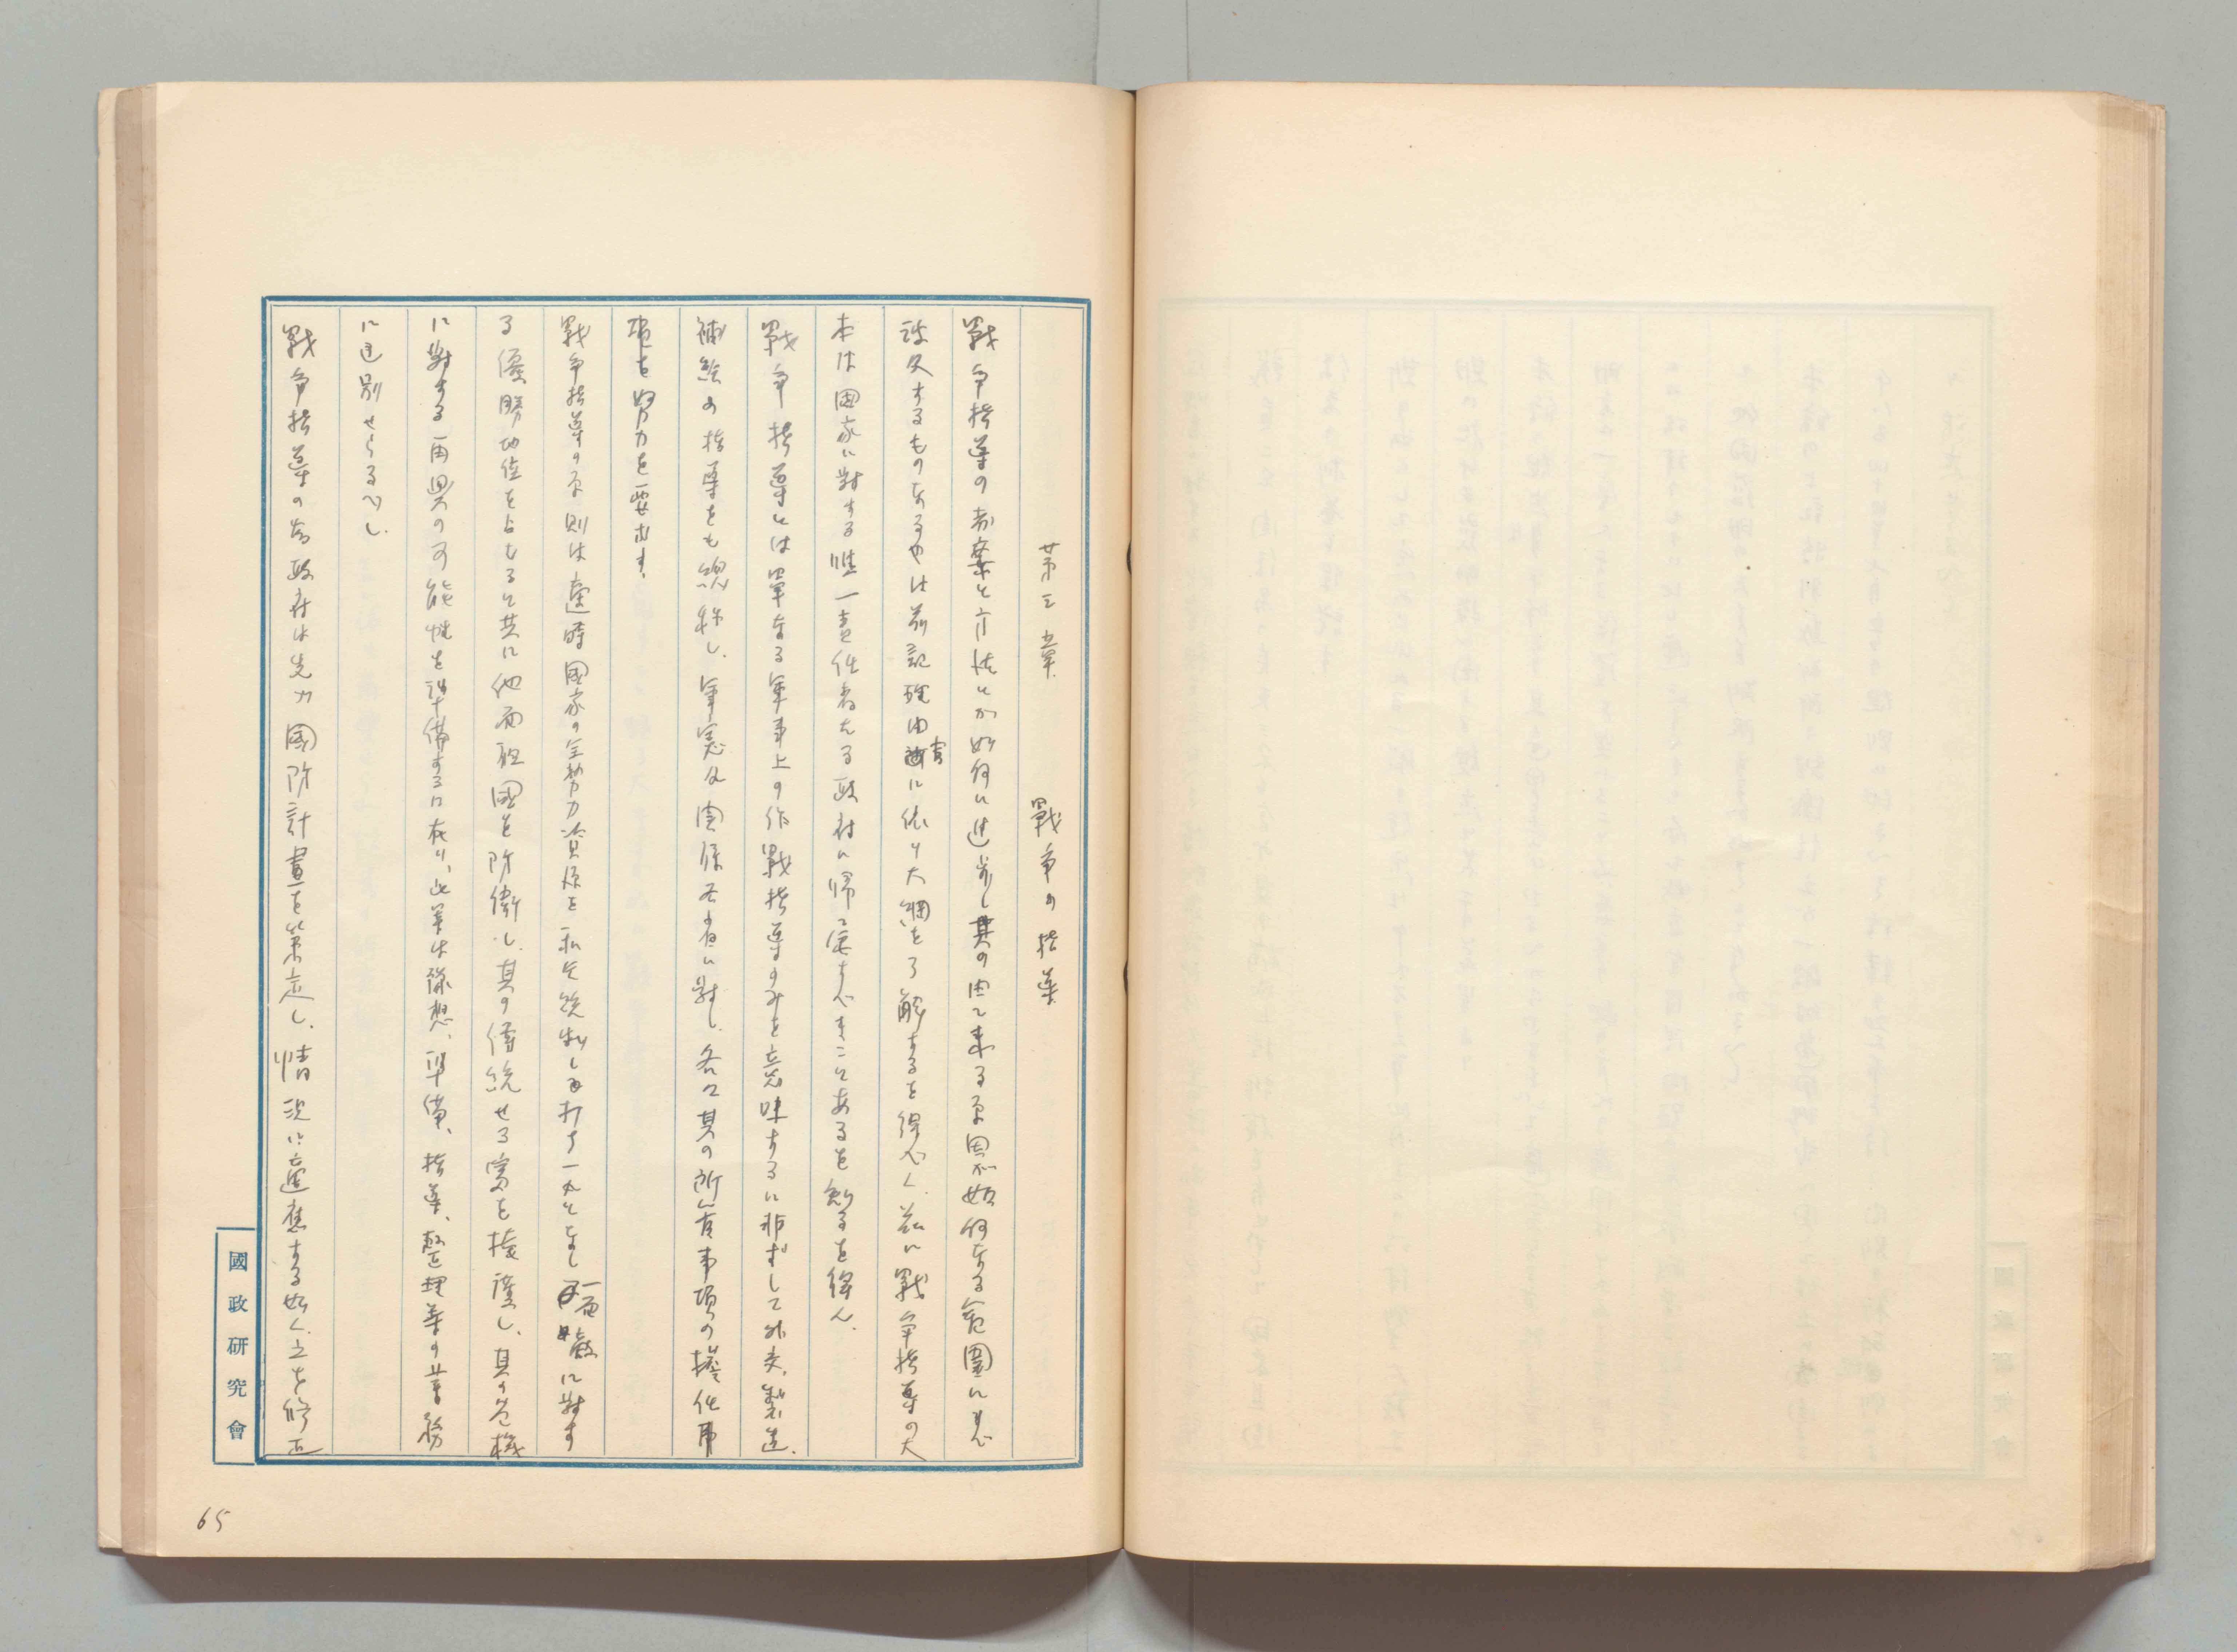 第三章　戰争の指導
戰争指導の考案と方法とが如何に進歩し其の由て来る原因が如何なる範圍に迄
波及するものなるやは前記理由書に依り大綱を了解するを得べく、茲に戰争指導の大
本は國家に對する唯一責任者たる政府に帰て定すべきことあるを知るを得ん、
戰争指導とは單なる軍事上の作戰指導のみを意味するに非ずして外交、製造、
補給の指導をも總称し、軍憲及関係各省に對し、各々其の所管事項の擔任用
項を努力を要求す、
戰争指導の原則は適時國家の全努力資源を統制し一丸となし一面敵に對す
る優勝地位を占むると共に他面祖國を防衛し、其の傳統せる富を擁護し、其の危機
に對する再興の可能性を準備するに在り、此業は豫想、準備、指導、整理等の業務
に区別せらるべし、
戰争指導の為政府は先ヅ國防計畫を策定し、情況に適應する如く之を修正
國政研究會
65